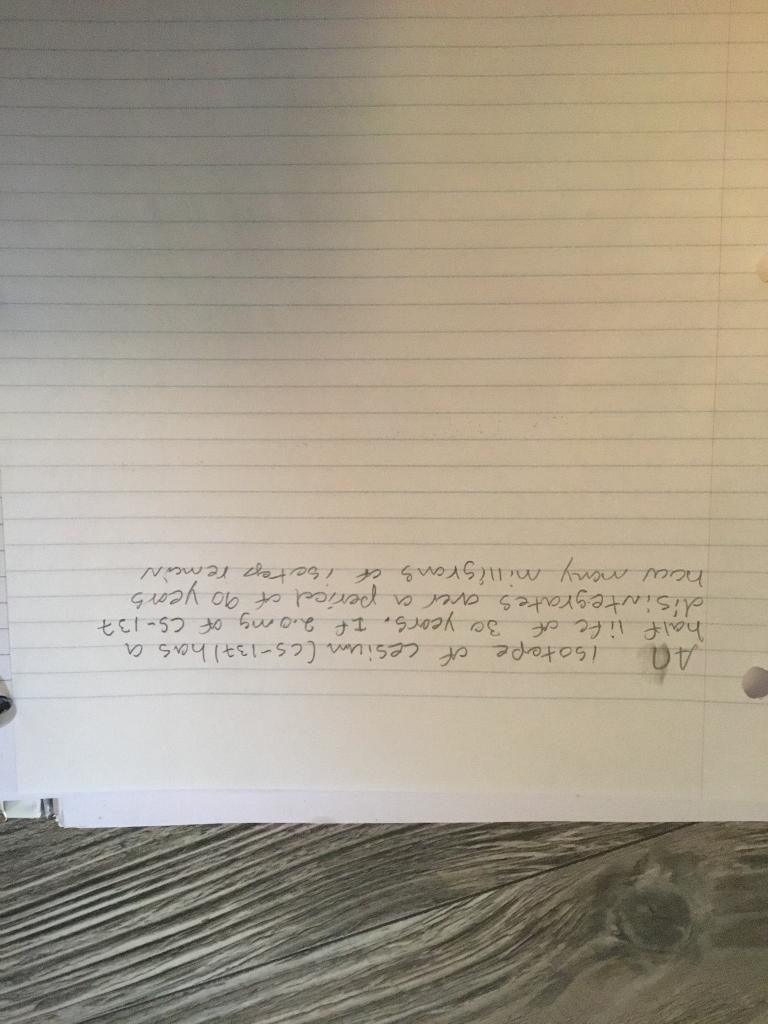 An isotope of cesium (cs-137) has a
half life of 30 years. If 2.0mg of CS-137
disintegrates over a period of 90 years
how many milligrans of isotop remain